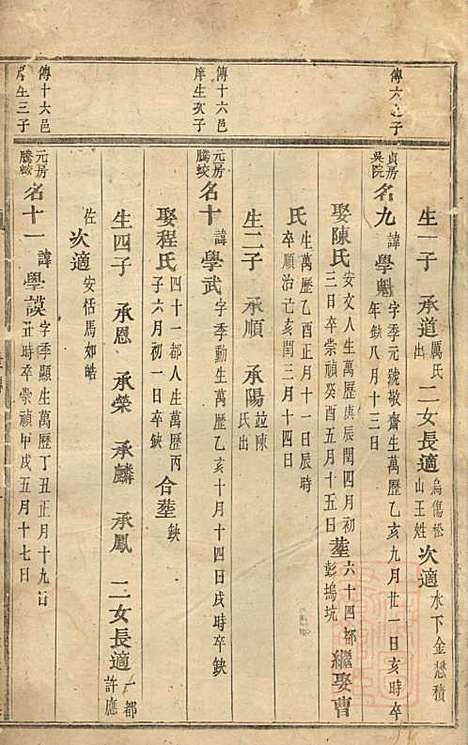 傳六之子
傳十六邑
庠生次子
傳十六邑
庠生三子
生一子 承道 厲氏出 二女長適 烏傷松山王姓 次適 水下金懋積
貞房吳院 名九 諱 學魁 字季元號敬齋生萬歷乙亥九月廿一日亥時卒年缺八月十三日
娶陳氏 安文人生萬歷庚辰閏四月初三日卒崇禎癸酉五月十五日 塟 六十四都彭塢坑 繼娶曹
氏 生萬歷乙酉正月十一日辰時卒順治己亥閏三月十四日
生二子 承順 承陽 竝陳氏出
元房騰蛟 名十 諱 學武 字季勳生萬歷乙亥十月十四日戌時卒缺
娶程氏 四十一都人生萬歷丙子六月初一日卒缺 合塟 缺
生四子 承恩 承榮 承麟 承鳳 二女長適 一都許應
佐 次適 安恬馬如皓
元房騰蛟 名十一 諱 學謨 字季顯生萬歷丁丑正月十九日丑時卒崇禎甲戌五月十七日